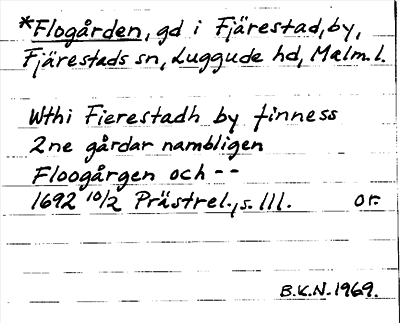 *Flogården, gd i Fjärestad, by,
Fjärestads sn, Luggude hd, Malm. l.
Wthi Fierestadh by finness
2ne gårdar nambligen
Floogårgen och --
1692 10/2 Prästrel., s. 111. or.
B.K.N. 1969.